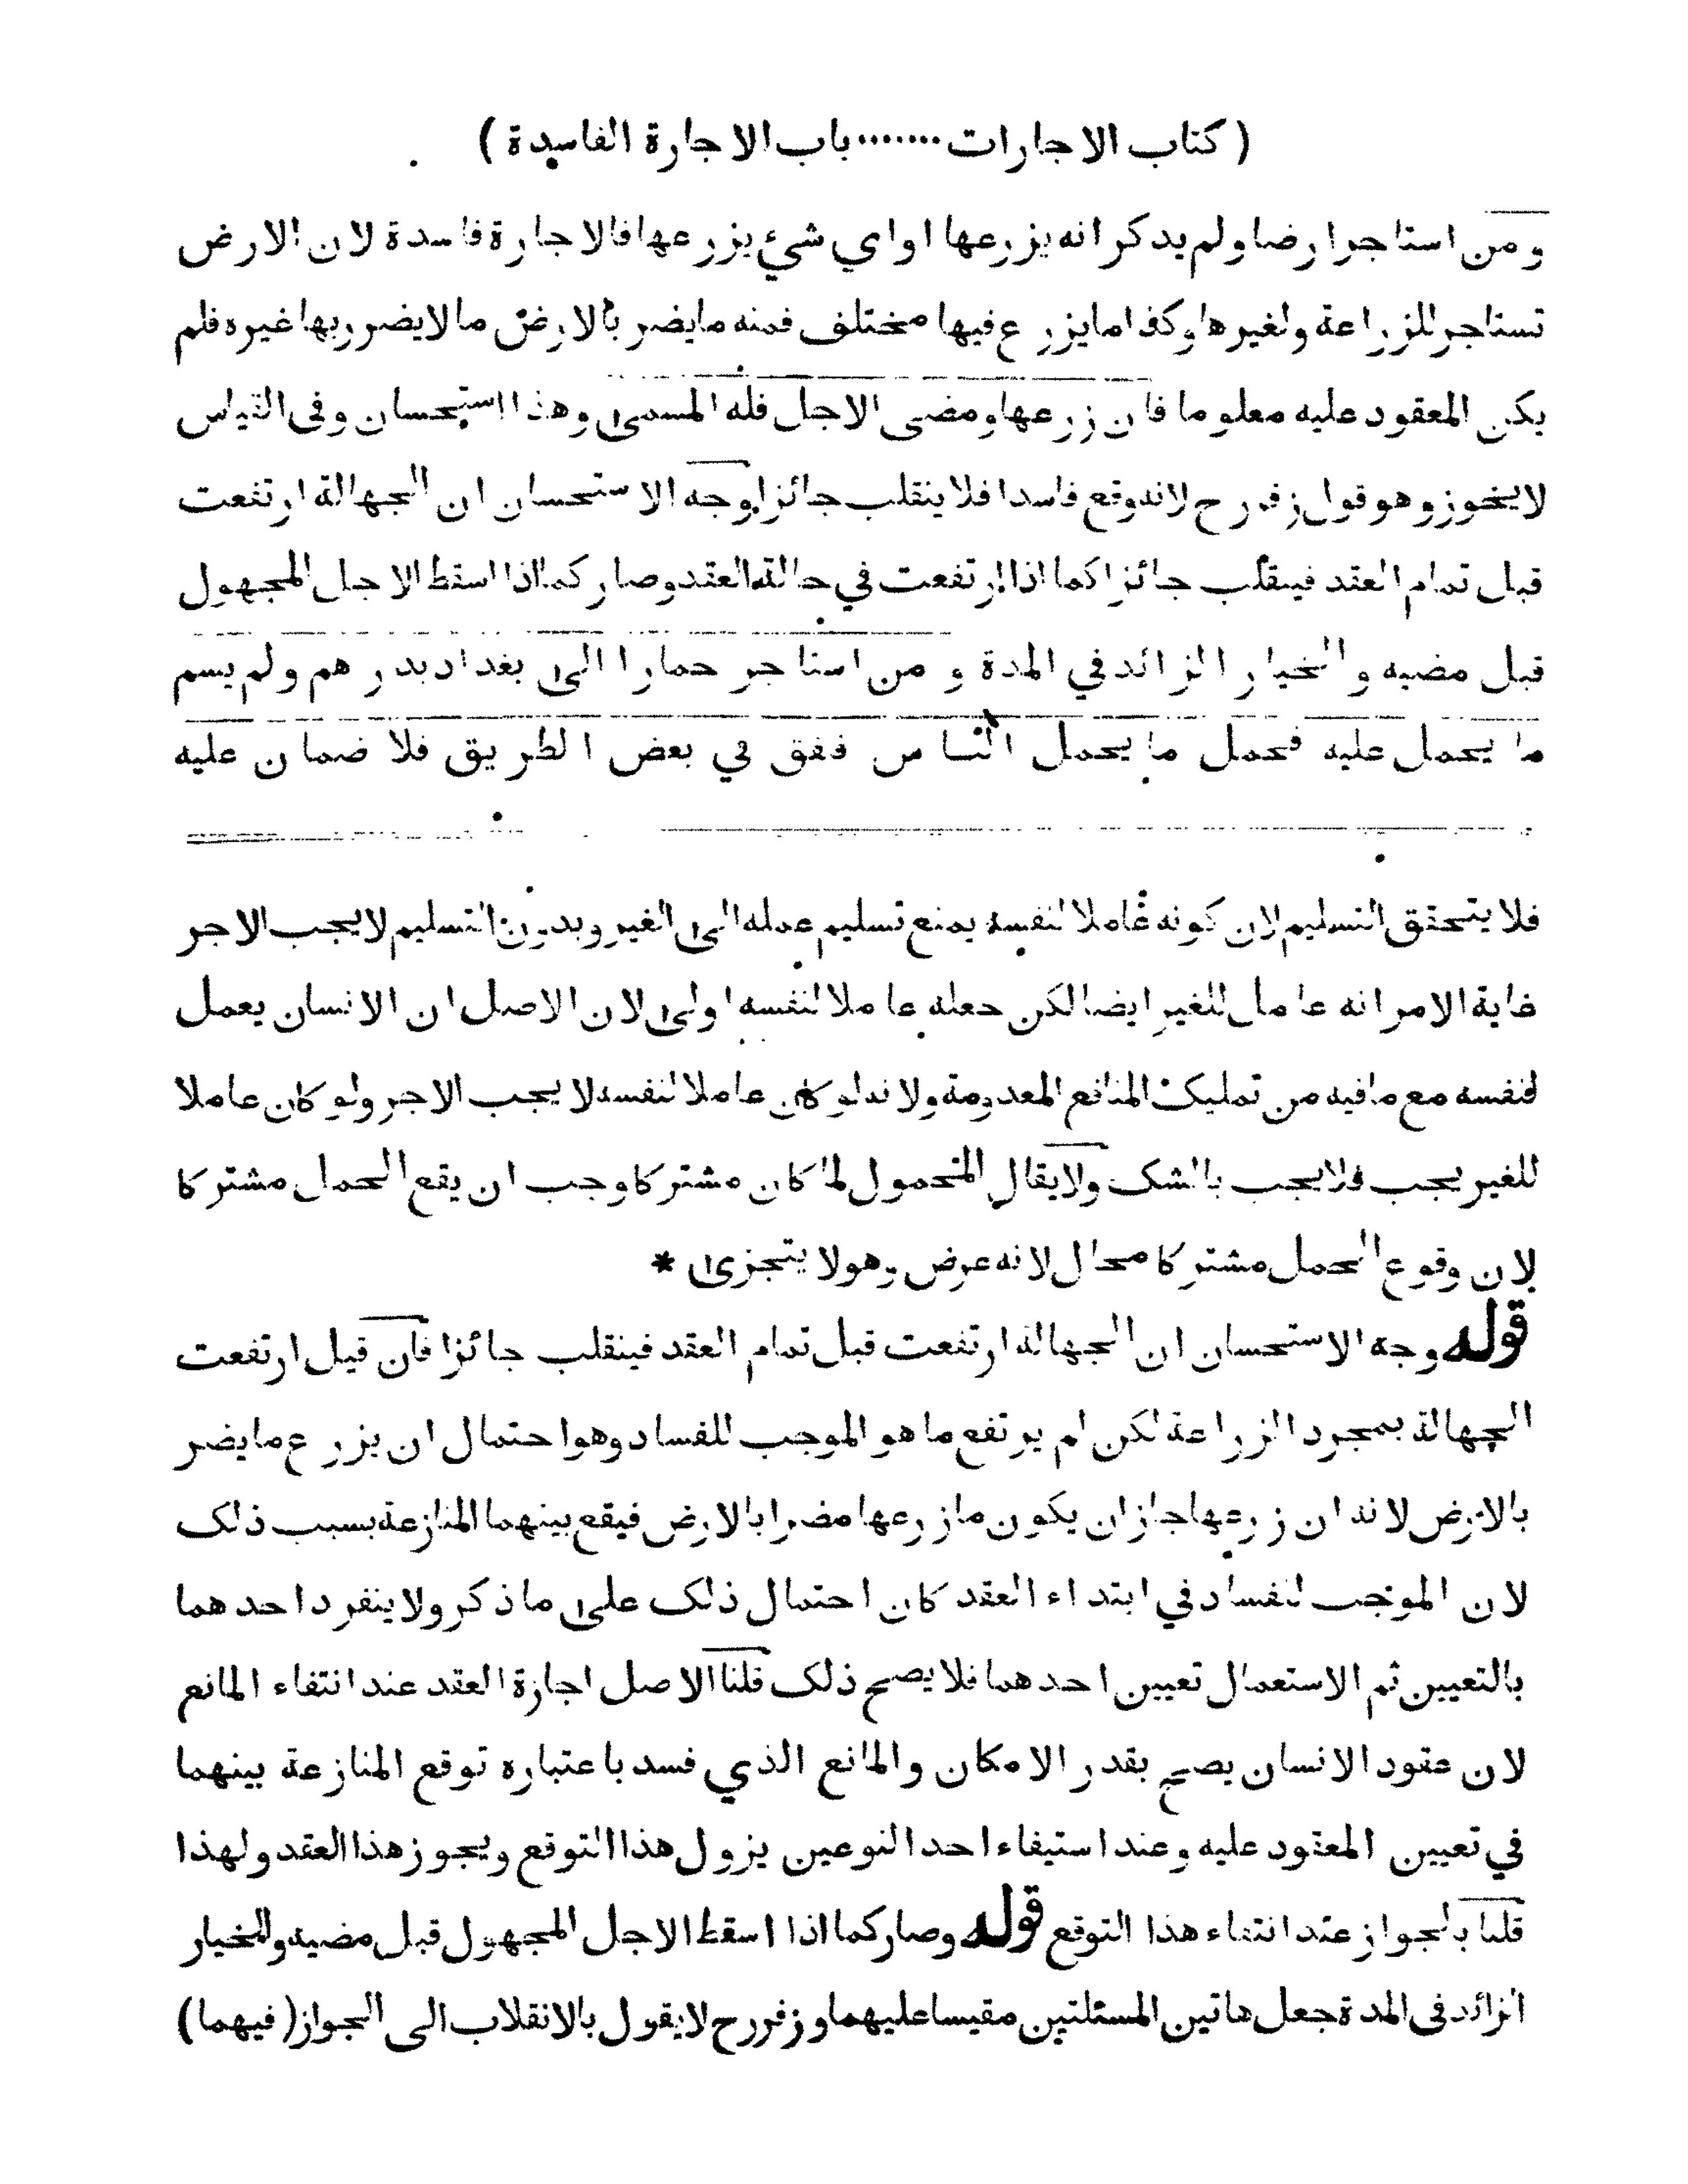 ( كتاب الاجارات ....... باب الاجارة الفاسدة )
و من استاجر ارضا ولم يذكر انه يزرعها او اي شئ يزرعها فالاجارة فاسدة لان الارض
تستاجر للزراعة ولغيرها وكذا ما يزرع فيها مختلف فمنه ما يضر بالارض ما لا يضر بها غيره فلم
يكن المعقود عليه معلوما فان زرعها ومضى الاجل فله المسمى وهذا استحسان وفى القياس
لا يجوز وهو قول زفر رح لانه وقع فاسدا فلا ينقلب جائزا وجه الاستحسان ان الجهالة ارتفعت
قبل تمام العقد فينقلب جائزا كما اذا ارتفعت في حالة العقد وصار كما اذا اسقط الاجل المجهول
قبل مضيه والخيار الزائد في المدة و من استاجر حمارا الى بغداد بدرهم ولم يسم
ما يحمل عليه فحمل ما يحمل الناس فنفق في بعض الطريق فلا ضمان عليه
فلا يتحقق التسليم لان كونه عاملا لنفسه يمنع تسليم عمله الى الغير وبدون التسليم لا يجب الاجر
غاية الامر انه عامل للغير ايضا لكن جعله عاملا لنفسه اولى لان الاصل ان الانسان يعمل
لنفسه مع ما فيه من تمليك المنافع المعدومة ولانه لو كان عاملا لنفسه لا يجب الاجر ولو كان عاملا
للغير يجب فلا يجب بالشك ولا يقال المحمول لما كان مشتركا وجب ان يقع الحمل مشتركا
لان وقوع الحمل مشتركا محال لانه عرض وهو لا يتجزى *
قوله وجه الاستحسان ان الجهالة ارتفعت قبل تمام العقد فينقلب جائزا فان قيل ارتفعت
الجهالة بمجرد الزراعة لكن لم يرتفع ما هو الموجب للفساد وهو احتمال ان يزرع ما يضر
بالارض لانه ان زرعها جاز ان يكون ما زرعها مضرا بالارض فيقع بينهما المنازعة بسبب ذلك
لان الموجب للفساد في ابتداء العقد كان احتمال ذلك على ما ذكر ولا ينفرد احدهما
بالتعيين ثم الاستعمال تعيين احدهما فلا يصح ذلك قلنا الاصل اجازة العقد عند انتفاء المانع
لان عقود الانسان يصح بقدر الامكان والمانع الذي فسد باعتباره توقع المنازعة بينهما
في تعيين المعقود عليه وعند استيفاء احد النوعين يزول هذا التوقع ويجوز هذا العقد ولهذا
قلنا بالجواز عند انتفاء هذا التوقع قوله وصار كما اذا اسقط الاجل المجهول قبل مضيه والخيار
الزائد فى المدة جعل هاتين المسئلتين مقيسا عليهما وزفر رح لا يقول بالانقلاب الى الجواز ( فيهما )